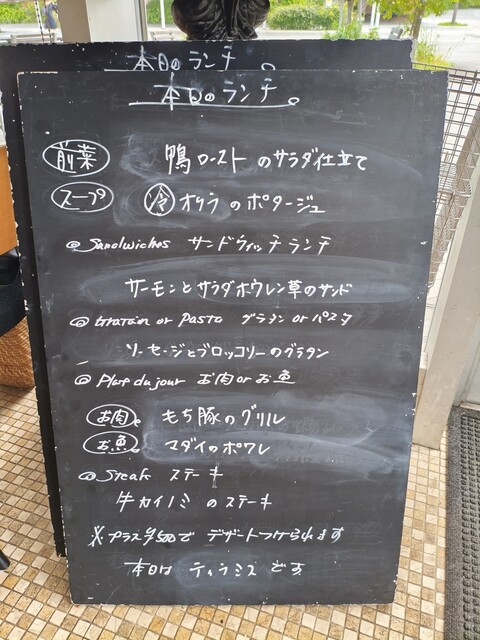 本日のランチ。
本日のランチ。
前菜 鴨ローストのサラダ仕立て
スープ 冷 オクラのポタージュ
@ Sandwiches サンドウィッチランチ
サーモンとサラダホウレン草のサンド
@ Gratain or Pasta グラタン or パスタ
ソーセージとブロッコリーのグラタン
@ Plat du jour お肉 or お魚
お肉 もち豚のグリル
お魚 マダイのポワレ
@ Steak ステーキ
牛カイノミのステーキ
※プラス¥500で デザートつけられます
本日は ティラミス です